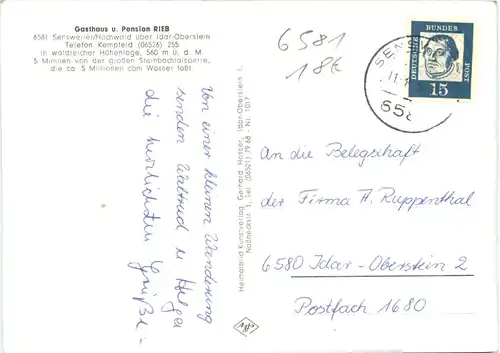 Gasthaus u. Pension RIEB
6581 Sensweiler/Hochwald über Idar-Oberstein
Telefon Kempfeld (06526) 255
In waldreicher Höhenlage, 560 m ü. d. M.
5 Minuten von der großen Steinbachtalsperre,
die ca. 5 Millionen cbm Wasser faßt.
Von einer kleinen Wanderung
senden Waltrud u. Helga
die herzlichsten
Grüße.
Heimatbild Kunstverlag Gerhard Hosser, Idar-Oberstein 1,
1, Tel. (06521) 79 68 - Nr. 1017
6581
18€
SEN
11.
658
DEUTSCHE
BUNDES
POST
15
An die Belegschaft
der Firma A. Ruppenthal
6580 Idar-Oberstein 2
Postfach 1680